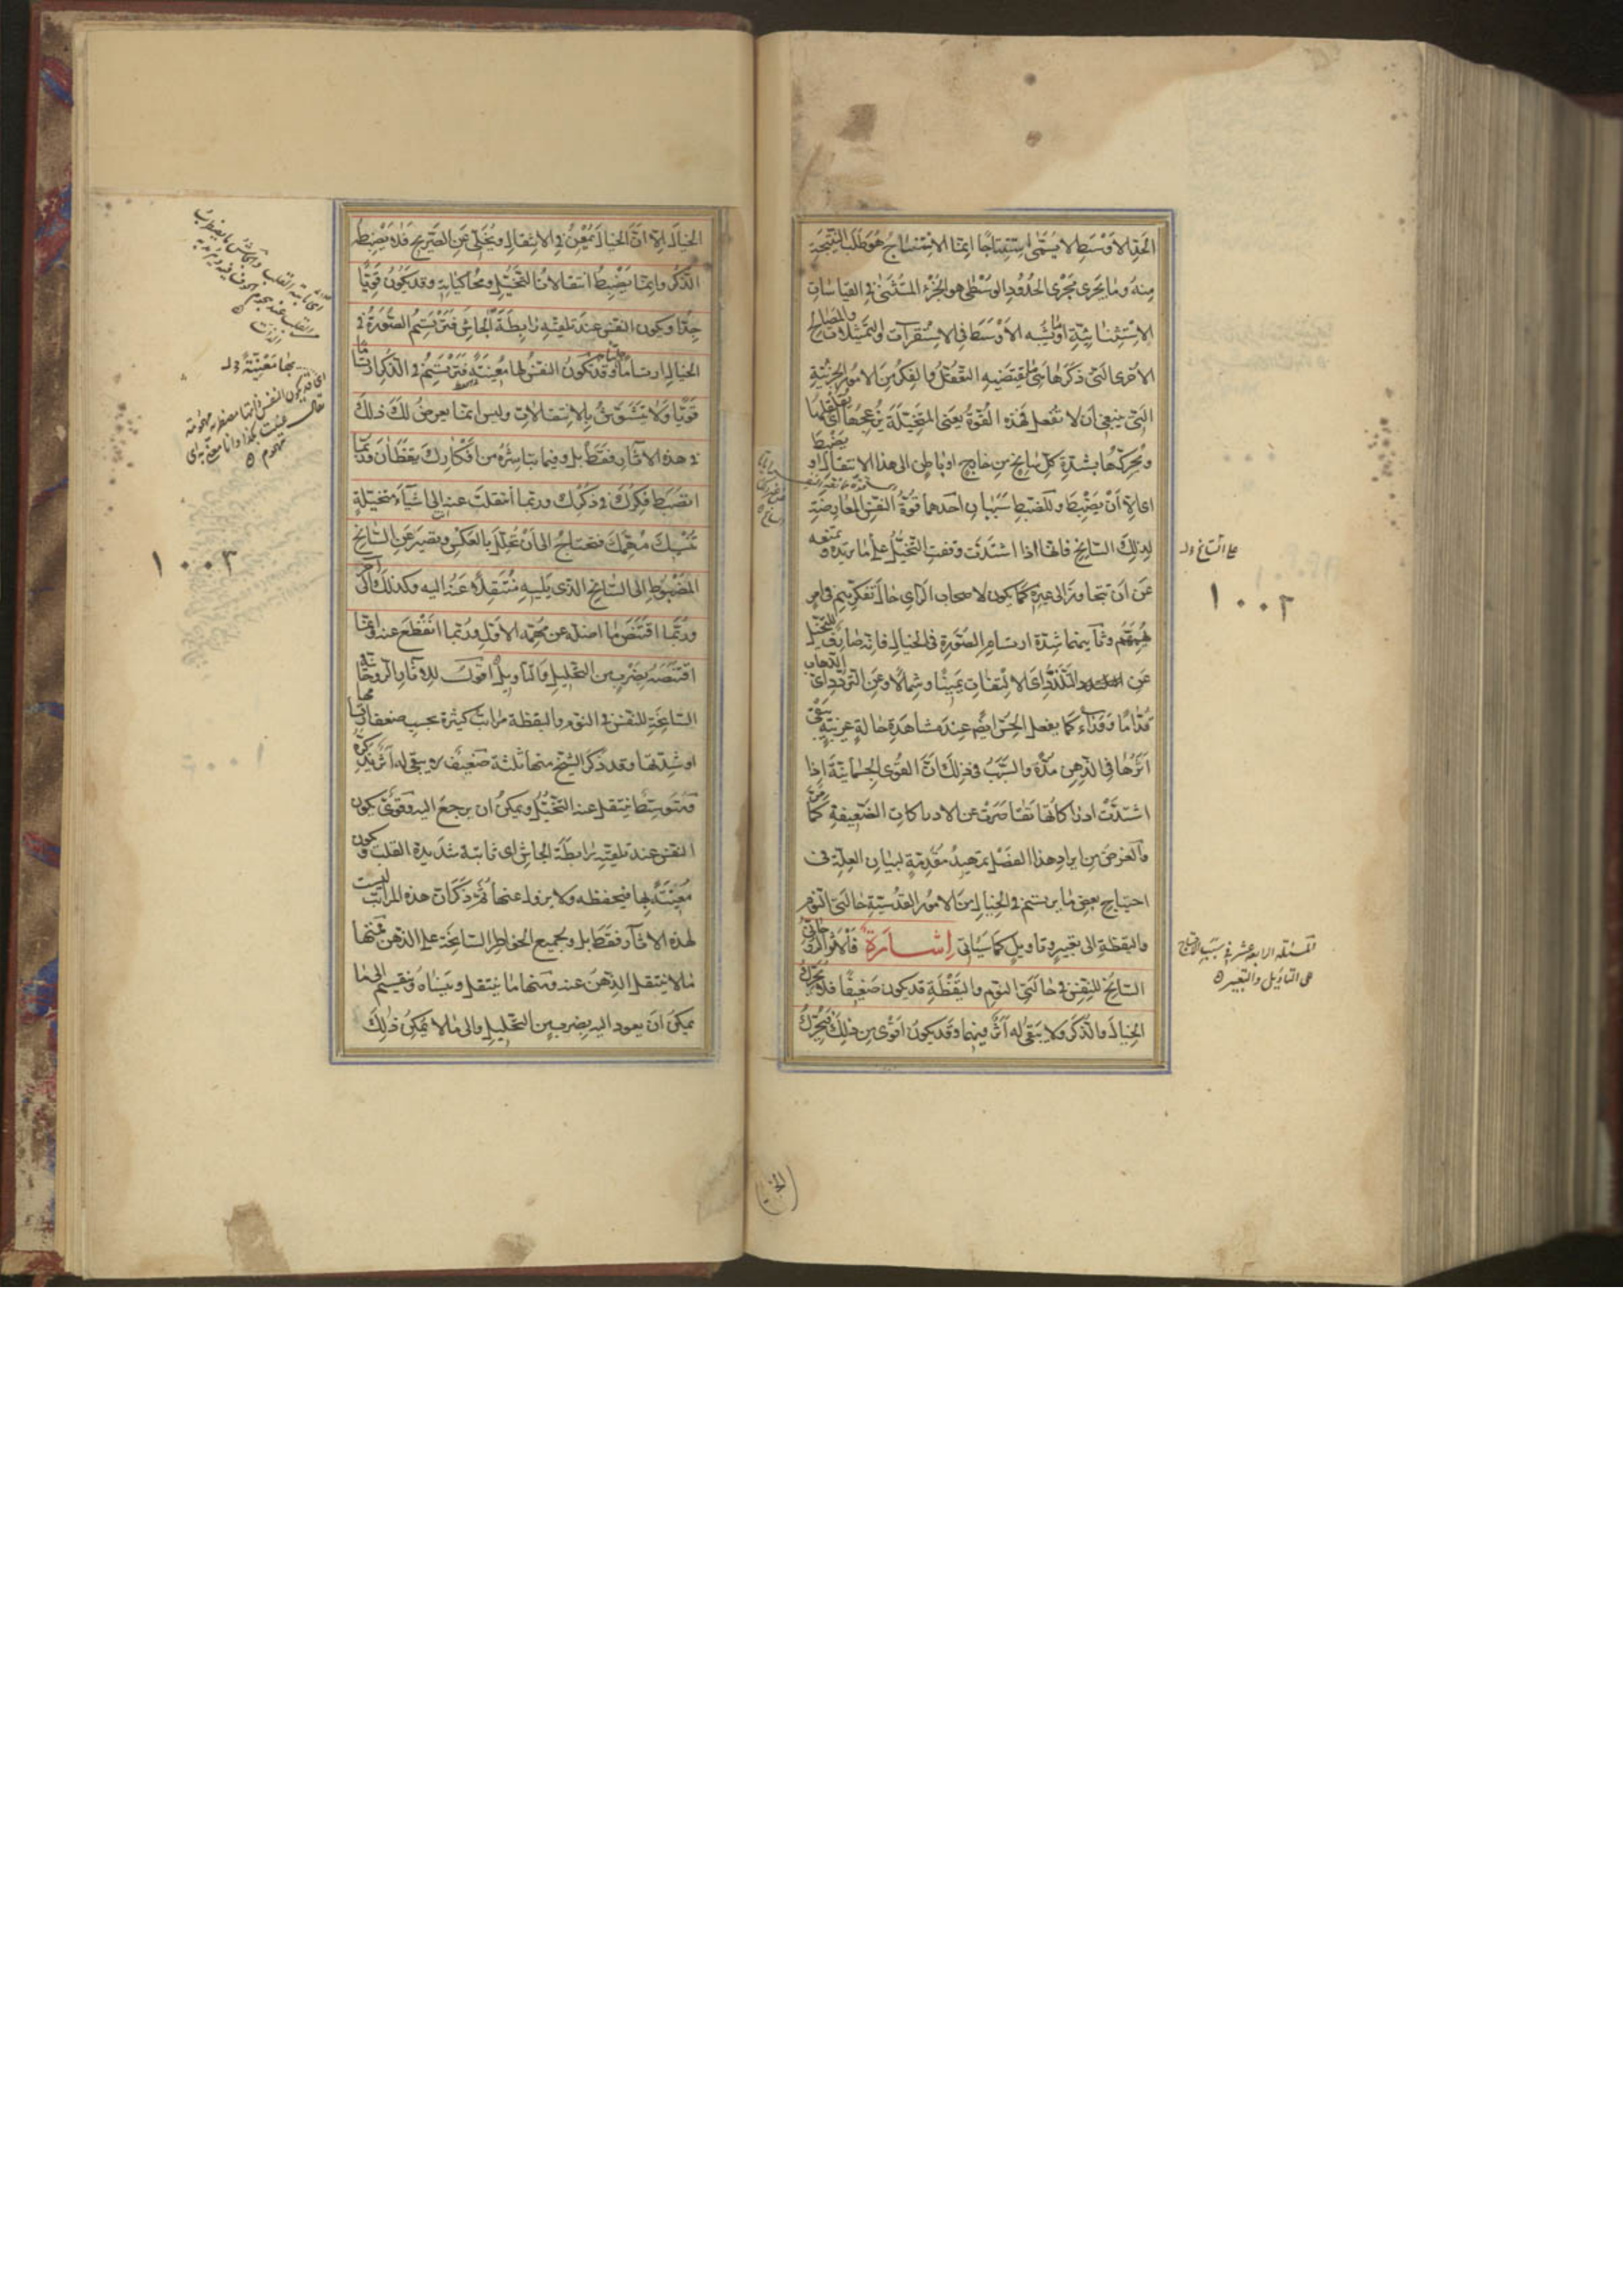 الحد الاوسط لا يسمى استنتاجا انما الاستنتاج هو طلب النتيجة
منه وما يجرى مجرى الحدود الوسطى هو الجزء المستثنى فى القياسات
الاستثنائية او ما يشبه الاوسط فى الاستقرآت والتمثيلات والمصالح
الاخرى التى ذكرها هى ما يقتضيه التعقل والفكر من الامور الجزئية
التى ينبغى ان لا تفعل فهذه القوة يعنى المتخيلة يزعجها اى يقلقها
ويحركها بشدة كل سانح من خارج او باطن الى هذا الانتقال او يضبط
اى الا ان يضبط وللضبط سببان احدهما قوة النفس المعارضة
لذلك السانح فانها اذا اشتدت وقفت التخيل على ما تريده وتمنعه
عن ان يتجاوز الى غيره كما يكون لاصحاب الراى حال تفكرهم فى امر
يهمهم وثانيهما شدة ارتسام الصورة فى الخيال فانه صارف للتخيل
عن التلدد اى الالتفات يمينا وشمالا وعن التردد اى الذهاب
قداما ووراء كما يفعل الحس ايضا عند مشاهدة حالة غريبة يبقى
اثرها فى الذهن مدة والسبب فى ذلك ان القوى الجسمانية اذا
اشتدت ادراكاتها تقاصرت عن الادراكات الضعيفة كما مر
والغرض من ايراد هذا الفصل تمهيد مقدمة لبيان العلة فى
احتياج بعض ما يرتسم فى الخيال من الامور القدسية حالتى النوم
واليقظة الى تعبير وتاويل كما سياتى اشارة فالاثر الروحانى
السانح للنفس فى حالتى النوم واليقظة قد يكون ضعيفا فلا يحرك
الخيال والذكر ولا يبقى له اثر فيهما وقد يكون اقوى من ذلك فيحرك
على السانح وله
١٠٠٢
المسئله الرابعه عشر فى سبب الاحتياج
الى التاويل والتعبير
الخيال الا ان الخيال يمعن فى الانتقال ويخلى عن الصريح فلا يضبطه
الذكر وانما يضبط انتقالات التخيل ومحاكياته وقد يكون قويا
جدا ويكون النفس عند تلقيه رابطة الجاش فترتسم الصورة فى
الخيال ارتساما جليا وقد تكون النفس لها معينة فترتسم فى الذكر ارتساما
قويا ولا يتشوش بالانتقالات وليس انما يعرض لك ذلك
فى هذه الاثار فقط بل وفيما تباشره من افكارك يقظان فربما
انضبط فكرك فى ذكرك وربما انتقلت عنه الى اشياء متخيلة
تنسيك مهمك فتحتاج الى ان تحلل بالعكس وتصير عن السانح
المضبوط الى السانح الذى يليه منتقلا عنه اليه وكذلك الى اخر
وربما اقتنص ما اضله من مهمه الاول وربما انقطع عنه وانما
اقتنصه بضرب من التحليل والتاويل اقول للاثار الروحانية
السانحة للنفس فى النوم واليقظة مراتب كثيرة بحسب ضعف ارتسامها
او شدتها وقد ذكر الشيخ منها ثلثة ضعيف لا يبقى له اثر تذكره
ومتوسط ينتقل عنه التخيل ويمكن ان يرجع اليه وقوى يكون
النفس عند تلقيه رابطة الجاش اى ثابتة شديدة القلب وتكون
معينة بها فيحفظه ولا يزول عنها ثم ذكر ان هذه المراتب ليست
لهذه الاثار فقط بل ولجميع الخواطر السانحة على الذهن فمنها
ما لا ينتقل الذهن عنه ومنها ما ينتقل وينساه وينقسم الى ما
يمكن ان يعود اليه بضرب من التحليل والى ما لا يمكن ذلك
بها معينة وله
١٠٠٣